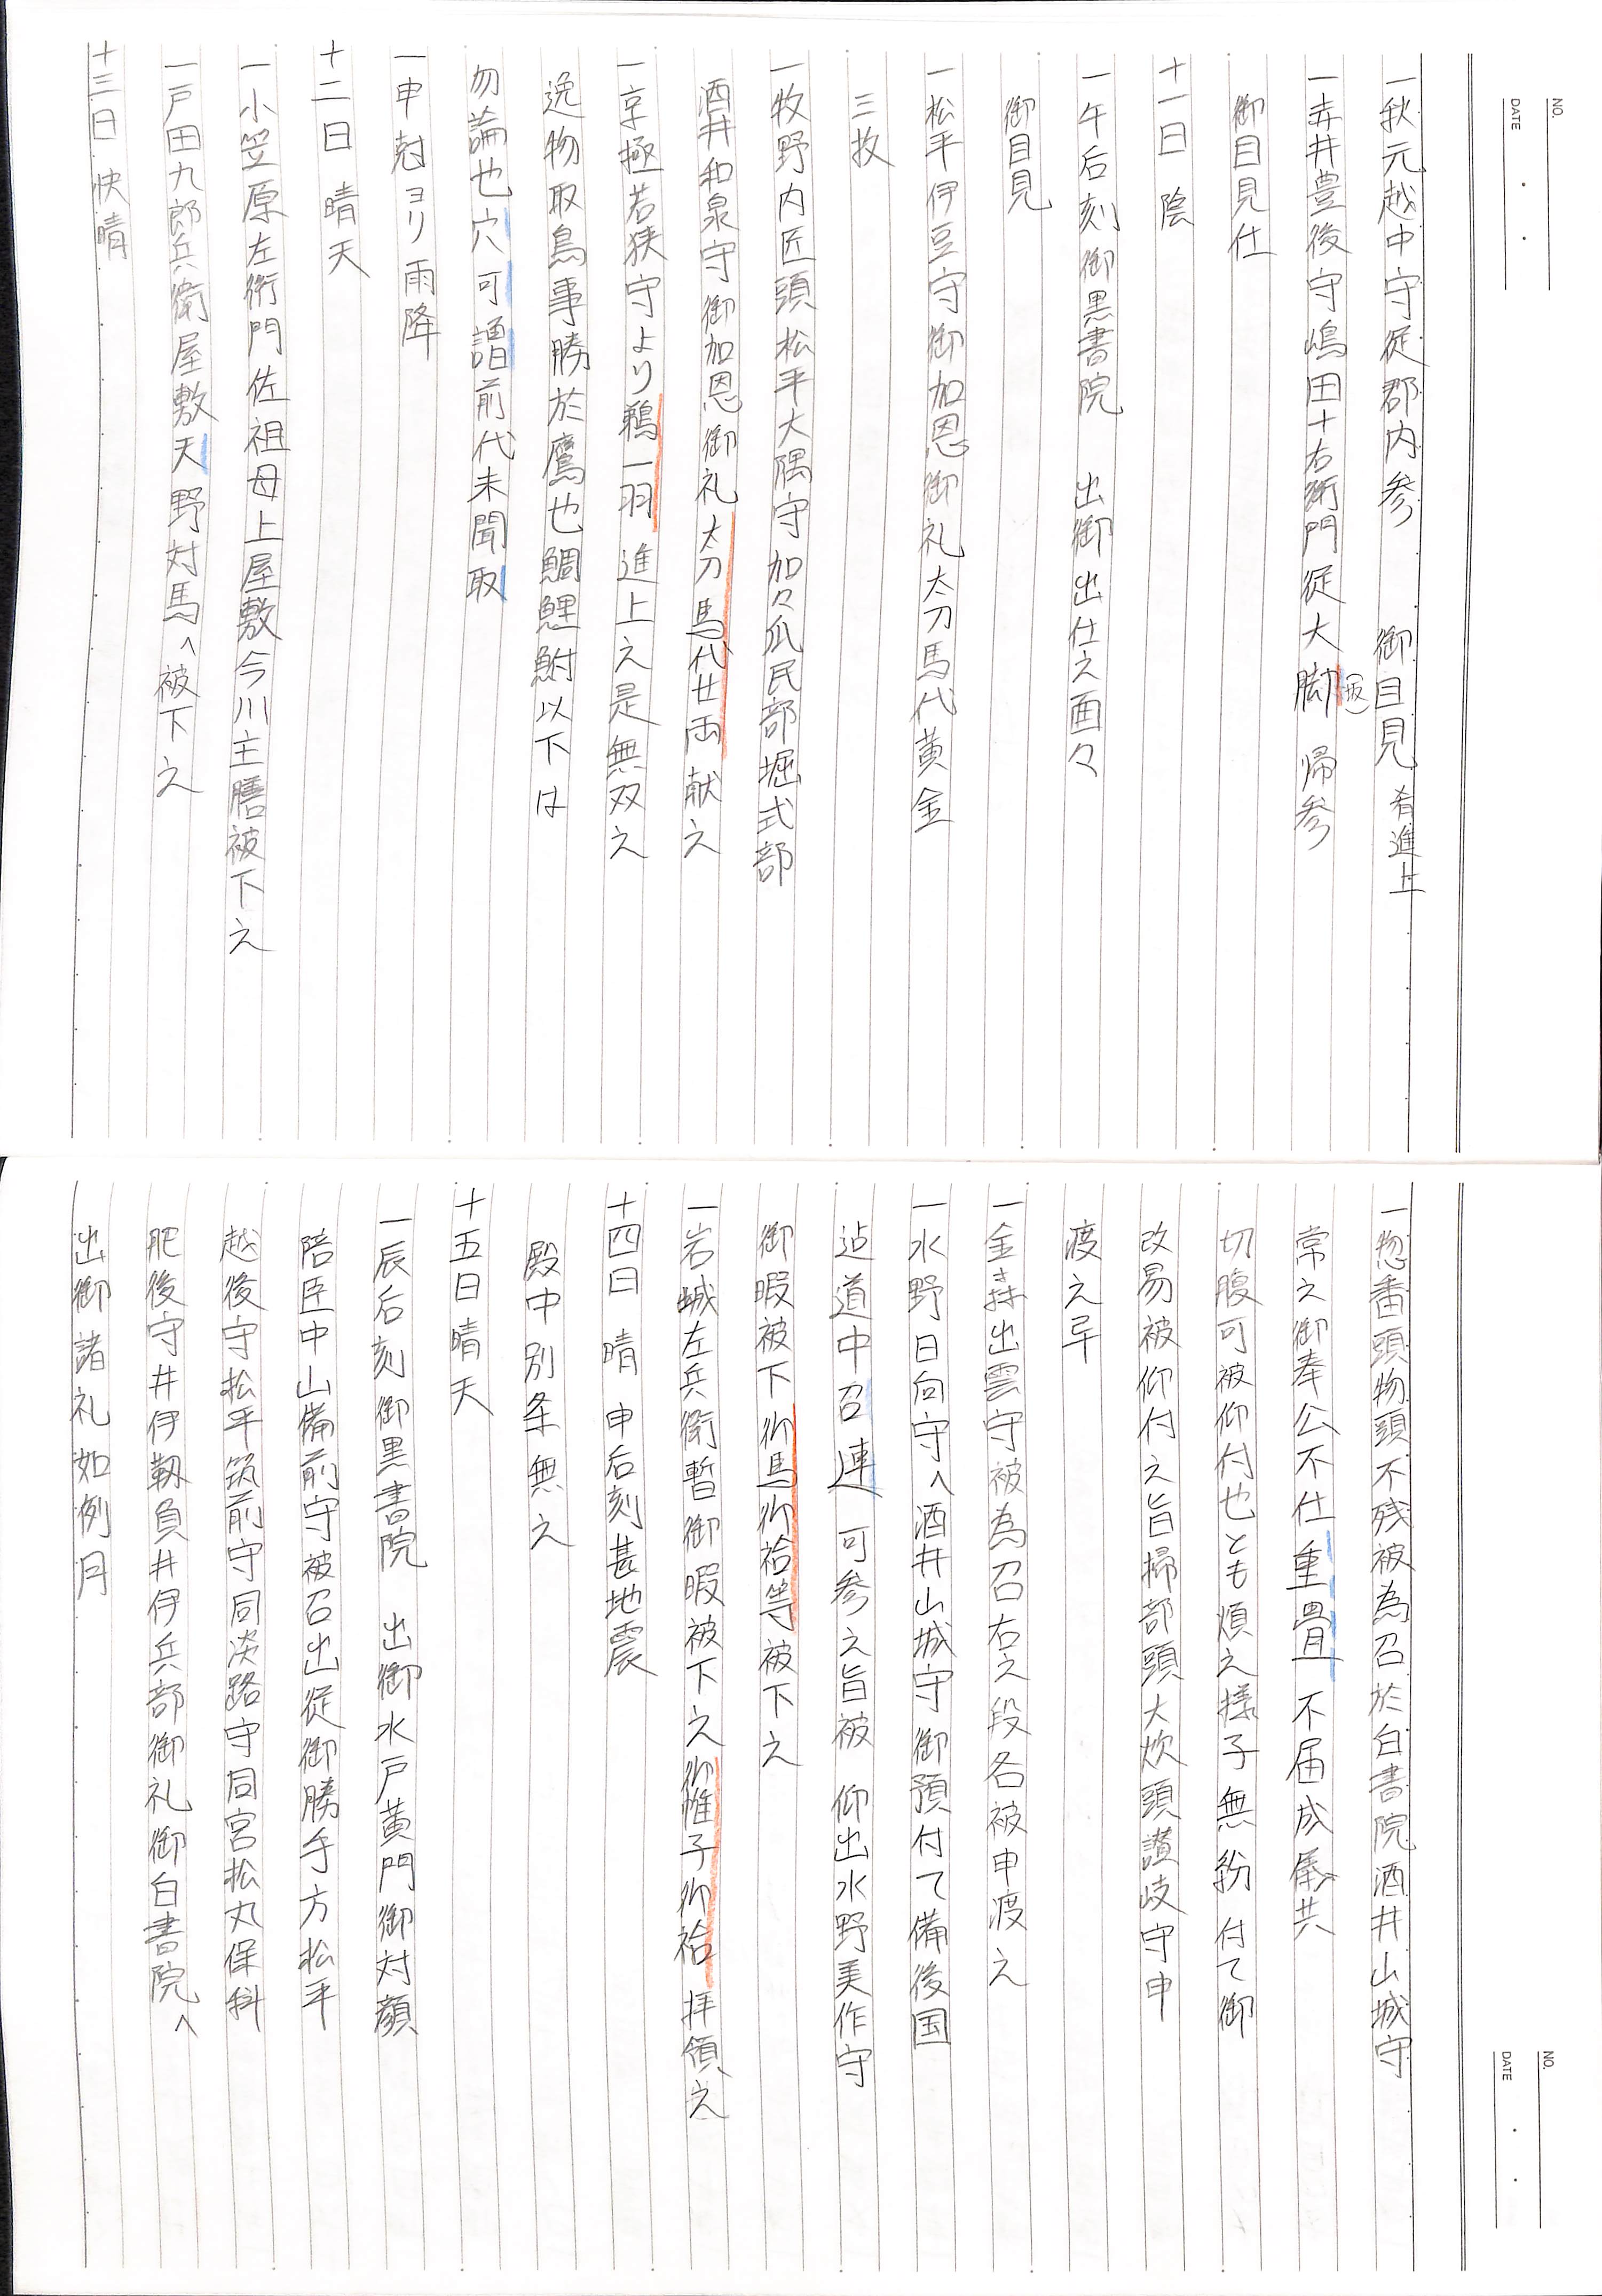 NO.
DATE
一秋元越中守従郡内参　御目見肴進上
一赤井豊後守嶋田十右衛門従大脚帰参
御目見仕
十一日　陰
一午后刻御黒書院　出御出仕之面々
御目見
一松平伊豆守御加恩御礼太刀馬代黄金
三枚
一牧野内匠頭松平大隅守加々爪民部堀式部
酒井和泉守御加恩御礼太刀馬代廿両献之
一京極若狭守より鶉一羽進上之是無双之
逸物取鳥事勝於鷹也鯛鯉鮒以下は
勿論也穴可謂前代未聞取
一申尅ヨリ雨降
十二日　晴天
一小笠原左衛門佐祖母上屋敷今川主膳被下之
一戸田九郎兵衛屋敷天野対馬へ被下之
十三日　快晴
NO.
DATE
一惣番頭物頭不残被為召於白書院酒井山城守
常之御奉公不仕重畳不届成儀共
切腹可被仰付也とも煩之様子無紛付て御
改易被仰付之旨掃部頭大炊頭讃岐守申
渡之畢
一金森出雲守被為召右之段各被申渡之
一水野日向守へ酒井山城守御預付て備後国
迠道中召連可参之旨被　仰出水野美作守
御暇被下御馬御袷等被下之
一岩城左兵衛暫御暇被下之御帷子御袷拝領之
十四日　晴　申后刻甚地震
殿中別条無之
十五日　晴天
一辰后刻御黒書院　出御水戸黄門御対顔
陪臣中山備前守被召出従御勝手方松平
越後守松平筑前守同淡路守同宮松丸保科
肥後守井伊靱負井伊兵部御礼御白書院へ
出御諸礼如例月